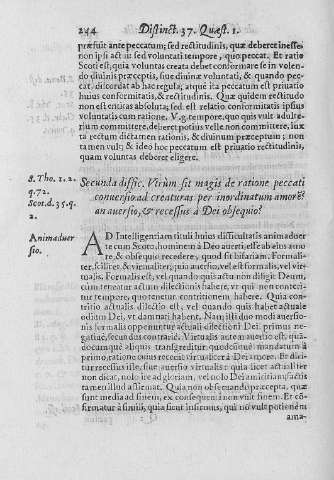 244 Distinct. 37. Quæst. 1.
præfuit ante peccatum; sed rectitudinis, quæ deberet inesse
non ipsi actui sed voluntati tempore, quo peccat. Et ratio
Scoti est, quia voluntas creata debet conformare se in volen-
do diuinis præceptis, siue diuinæ voluntati, & quando pec-
cat, discordat ab hac regula; atque ita peccatum est priuatio
huius conformitatis, & rectitudinis. Quæ quidem rectitudo
non est entitas absoluta; sed est relatio conformitatis ipsius
voluntatis cum ratione. V. g. tempore, quo quis vult adulte-
rium committere, deberet potius velle non committere, iux
ta rectum dictamen rationis, & diuinum præceptum; non
tamen vult; & ideo hoc peccatum est priuatio rectitudinis,
quam voluntas deberet eligere.
S. Tho. 1. 2.
q. 72.
Scot. d. 35. q.
2.
Secunda diffic. Vtrum sit magis de ratione peccati
conuersio ad creaturas per inordinatum amorẽ?
an auersio, & recessus à Dei obsequio?
Animaduer
sio.
AD Intelligentiam tituli huius difficultatis animaduer
te cum Scoto, hominem à Deo auerti, esse ab eius amo
re, & obsequio recedere, quod fit bifariam. Formali-
ter, scilicet, & virtualiter; quia auersio, vel est formalis, vel vir
tualis. Formalis est, vel quando quis actu non diligit Deum,
cum teneatur actum dilectionis habere, vt qui non conteri-
tur tempore, quo tenetur contritionem habere. Quia con-
tritio actualis dilectio est; vel quando quis habet actuale
odium Dei, vt damnati habent. Nam illi duo modi auersio-
nis formalis opponuntur actuali dilectioni Dei: primus ne-
gatiuè, secundus contrariè. Virtualis autem auersio est; quã-
documque aliquis transgreditur quodcumque mandatum à
primo, ratione cuius recedit virtualiter à Dei amore. Et dici-
tur recessus iste, siue auersio virtualis: quia licet actualiter
non dicat, nolo ire ad gloriam, vel nolo Dei amicitiam; factis
tamen illud affirmat. Quia non obseruando præcepta, quæ
sunt media ad finem, ex consequenti non vult finem. Et cõ-
firmatur à simili, quia sicut infirmus, qui nõ vult potionem
ama-